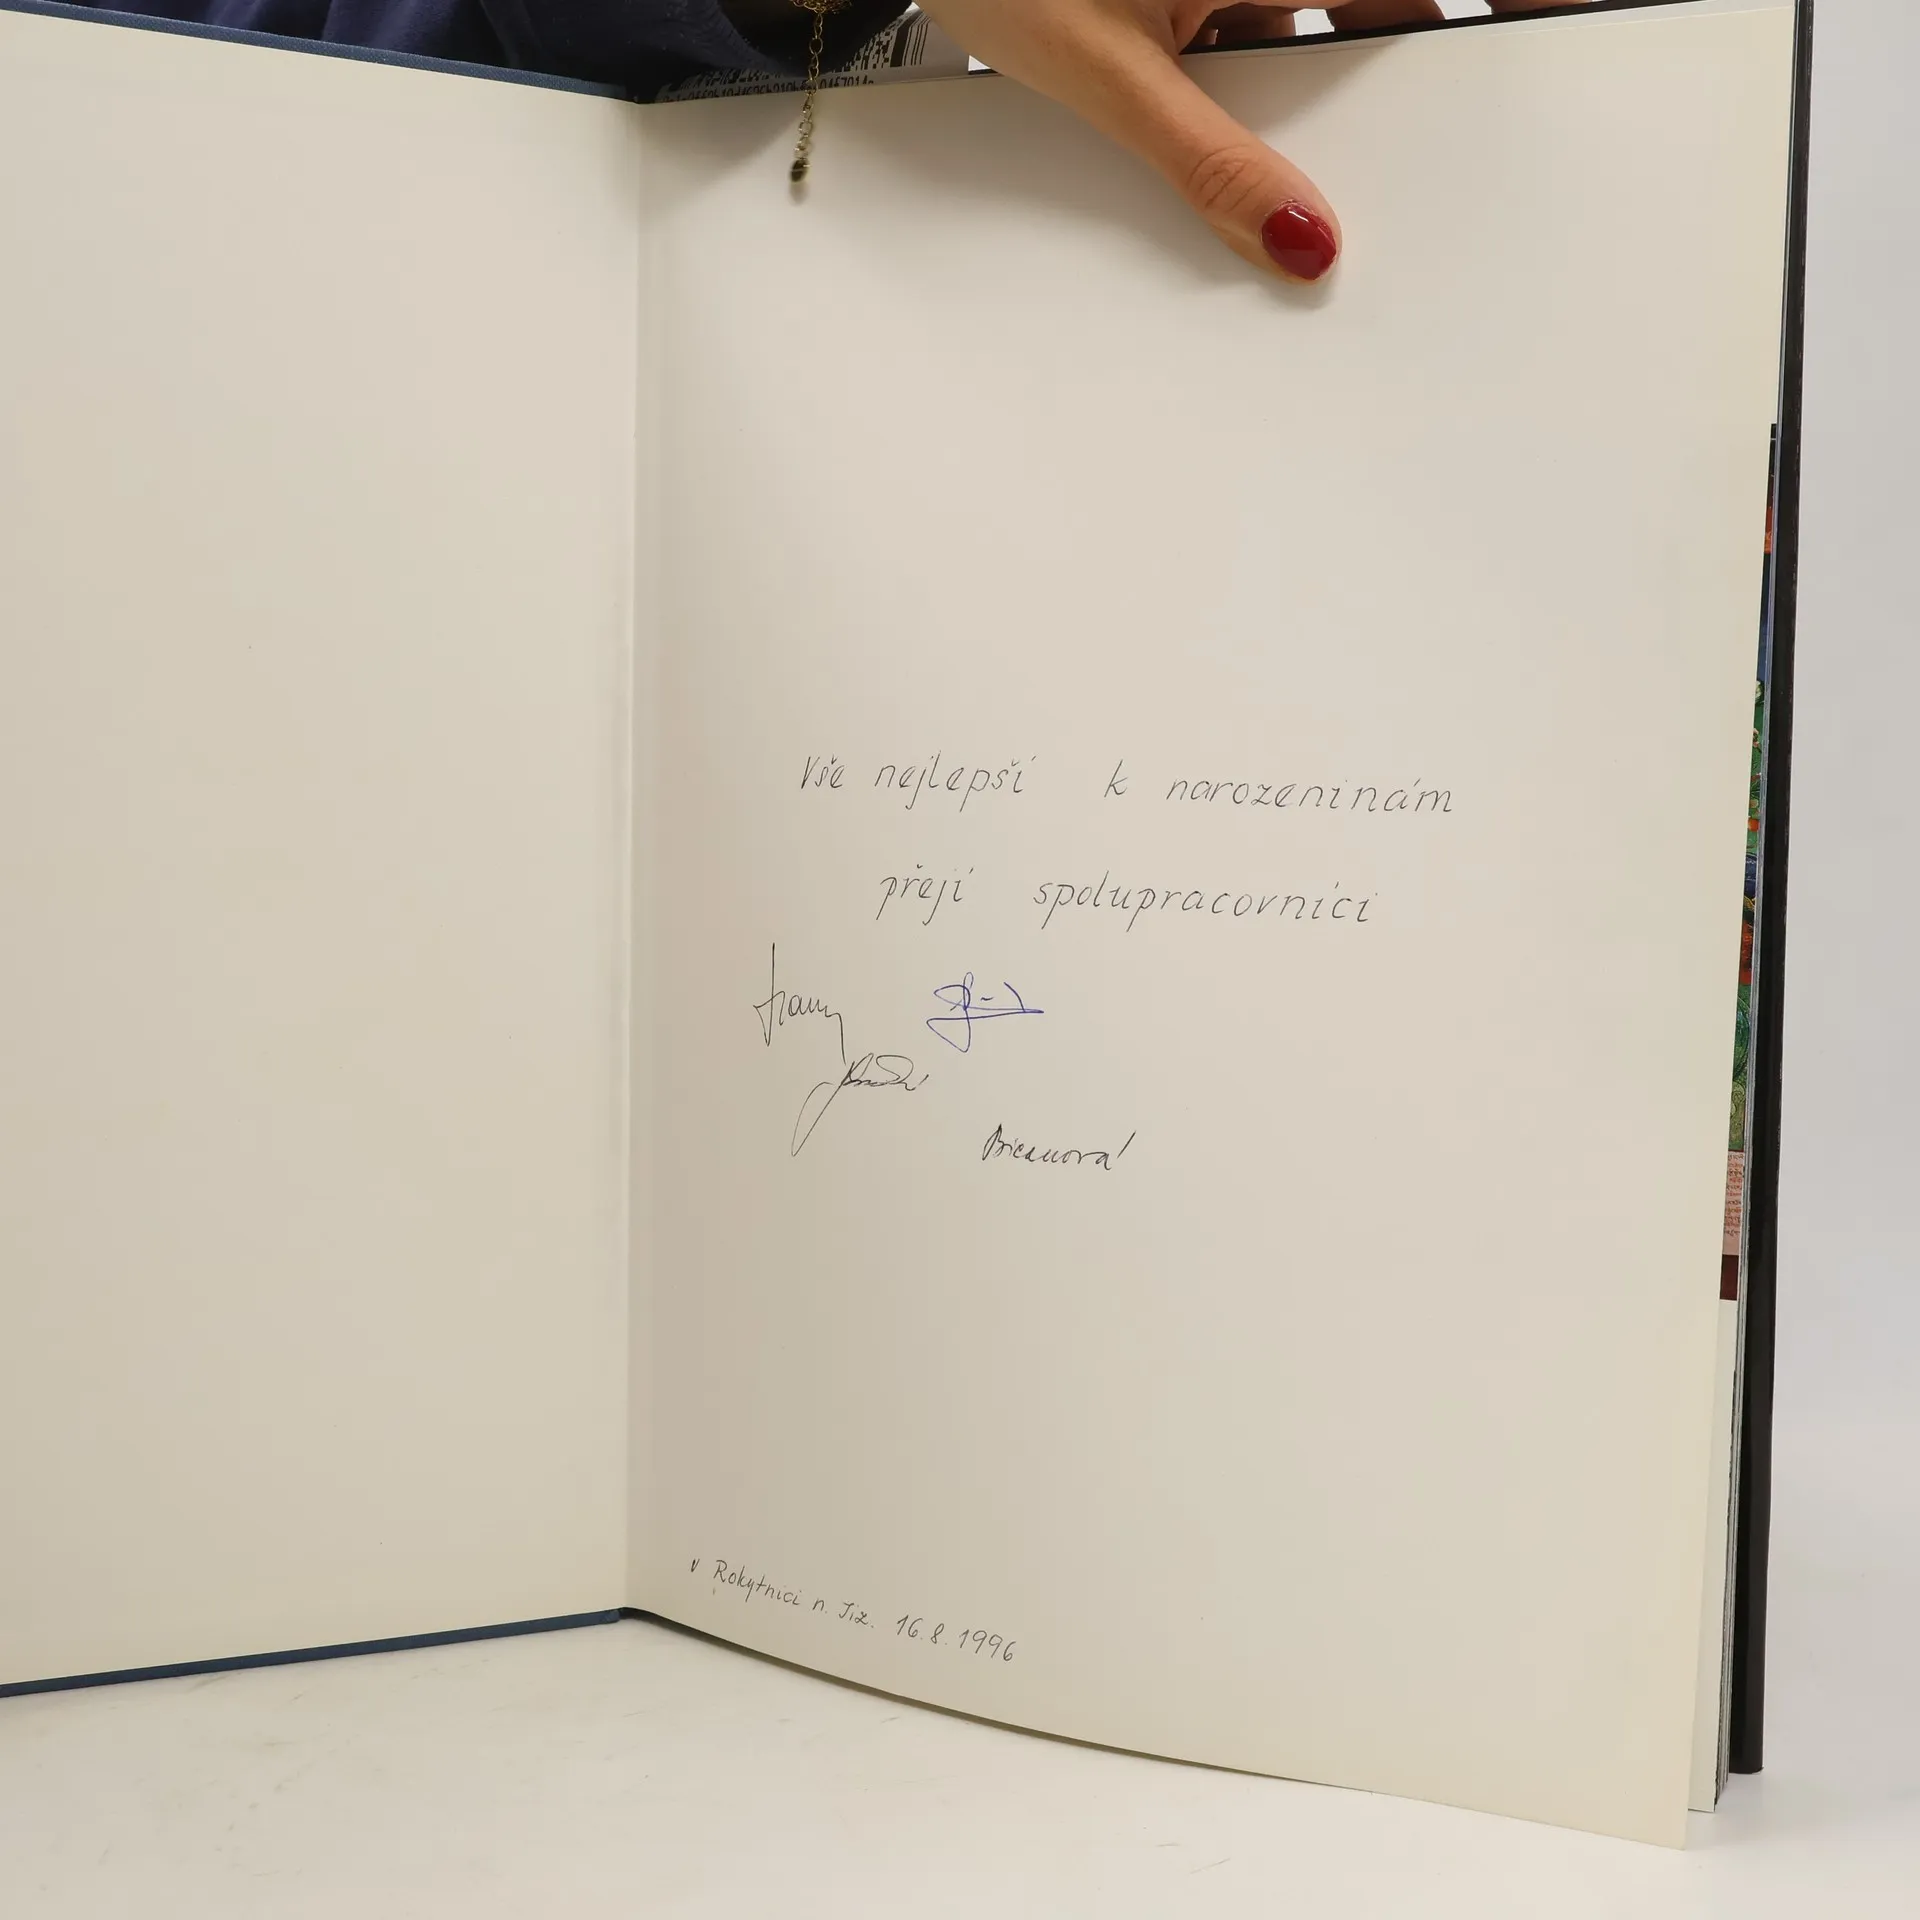 Vše nejlepší k narozeninám
přejí spolupracovníci
Bicanová
v Rokytnici n. Jiz. 16.8.1996